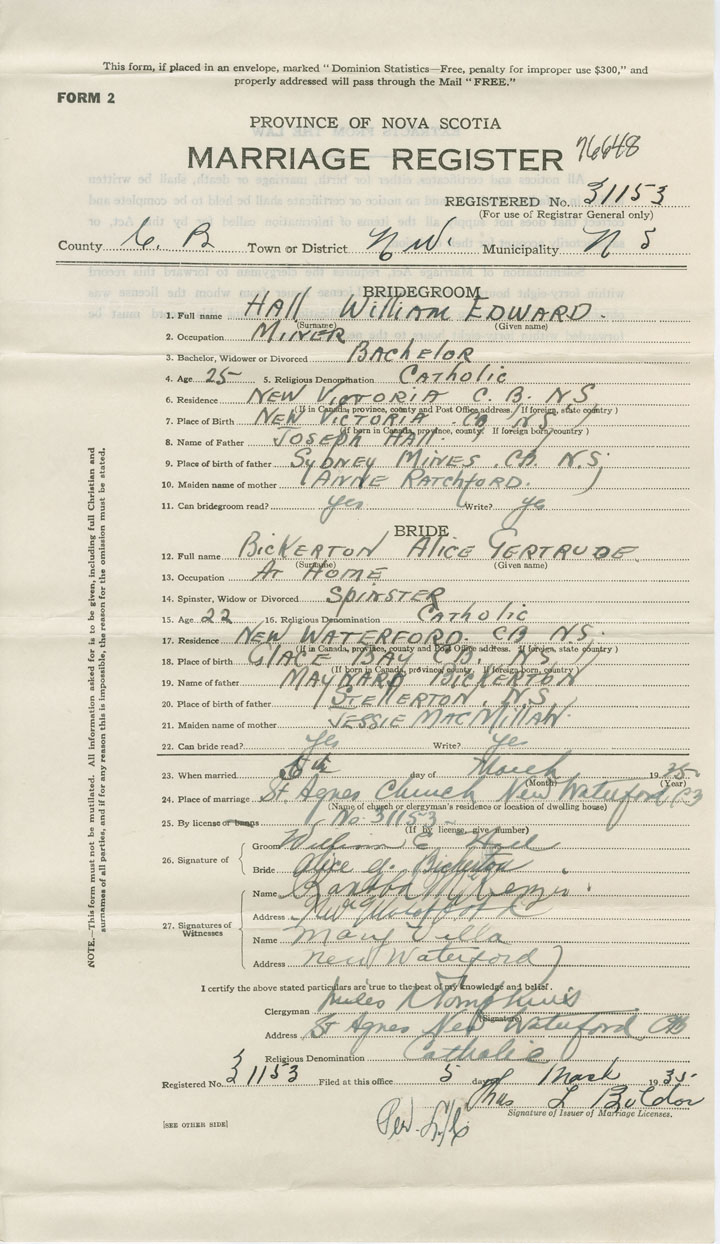 This form, if placed in an envelope, marked "Dominion Statistics—Free, penalty for improper use $300," and
properly addressed will pass through the Mail "FREE."
FORM 2
PROVINCE OF NOVA SCOTIA
MARRIAGE REGISTER 76648
REGISTERED No. 31153
(For use of Registrar General only)
County C. B Town or District N W. Municipality N S
BRIDEGROOM
1. Full name HALL WILLIAM EDWARD.
(Surname) (Given name)
2. Occupation MINER
3. Bachelor, Widower or Divorced BACHELOR
4. Age 25 5. Religious Denomination CATHOLIC
6. Residence NEW VICTORIA C. B. N S
(If in Canada, province, county and Post Office address. If foreign, state country)
7. Place of Birth NEW VICTORIA. CB N S
(If born in Canada, province, county. If foreign born, country)
8. Name of Father JOSEPH HALL.
9. Place of birth of father SYDNEY MINES. CB. N.S.
10. Maiden name of mother ANNE RATCHFORD.
11. Can bridegroom read? yes Write? yes
BRIDE
12. Full name BICKERTON ALICE GERTRUDE
(Surname) (Given name)
13. Occupation AT HOME
14. Spinster, Widow or Divorced SPINSTER
15. Age 22 16. Religious Denomination CATHOLIC
17. Residence NEW WATERFORD. CB N.S.
(If in Canada, province, county and Post Office address. If foreign, state country)
18. Place of birth GLACE BAY C.B. N.S.
(If born in Canada, province, county. If foreign born, country)
19. Name of father MAYNARD BICKERTON
20. Place of birth of father STELLERTON, N.S.
21. Maiden name of mother JESSIE MACMILLAN.
22. Can bride read? yes Write? yes
23. When married day of March 1935
(Month) (Year)
24. Place of marriage St. Agnes Church New Waterford CB
(Name of church or clergyman's residence or location of dwelling house)
25. By license or banns No. 31153
(If By license, give number)
26. Signature of
Groom William E Hall
Bride Alice G. Bickerton
27. Signatures of Witnesses
Name
Address New Waterford
Name Mary Villa
Address New Waterford
I certify the above stated particulars are true to the best of my knowledge and belief.
Clergyman Miles Tompkins
(Signature)
Address St Agnes New Waterford CB
Religious Denomination Catholic
Registered No. 31153 Filed at this office 5 day of March 1935
Thos L
Signature of Issuer of Marriage Licenses.
[SEE OTHER SIDE]
Per.
NOTE.—This form must not be mutilated. All information asked for is to be given, including full Christian and
surnames of all parties, and if for any reason this is impossible, the reason for the omission must be stated.